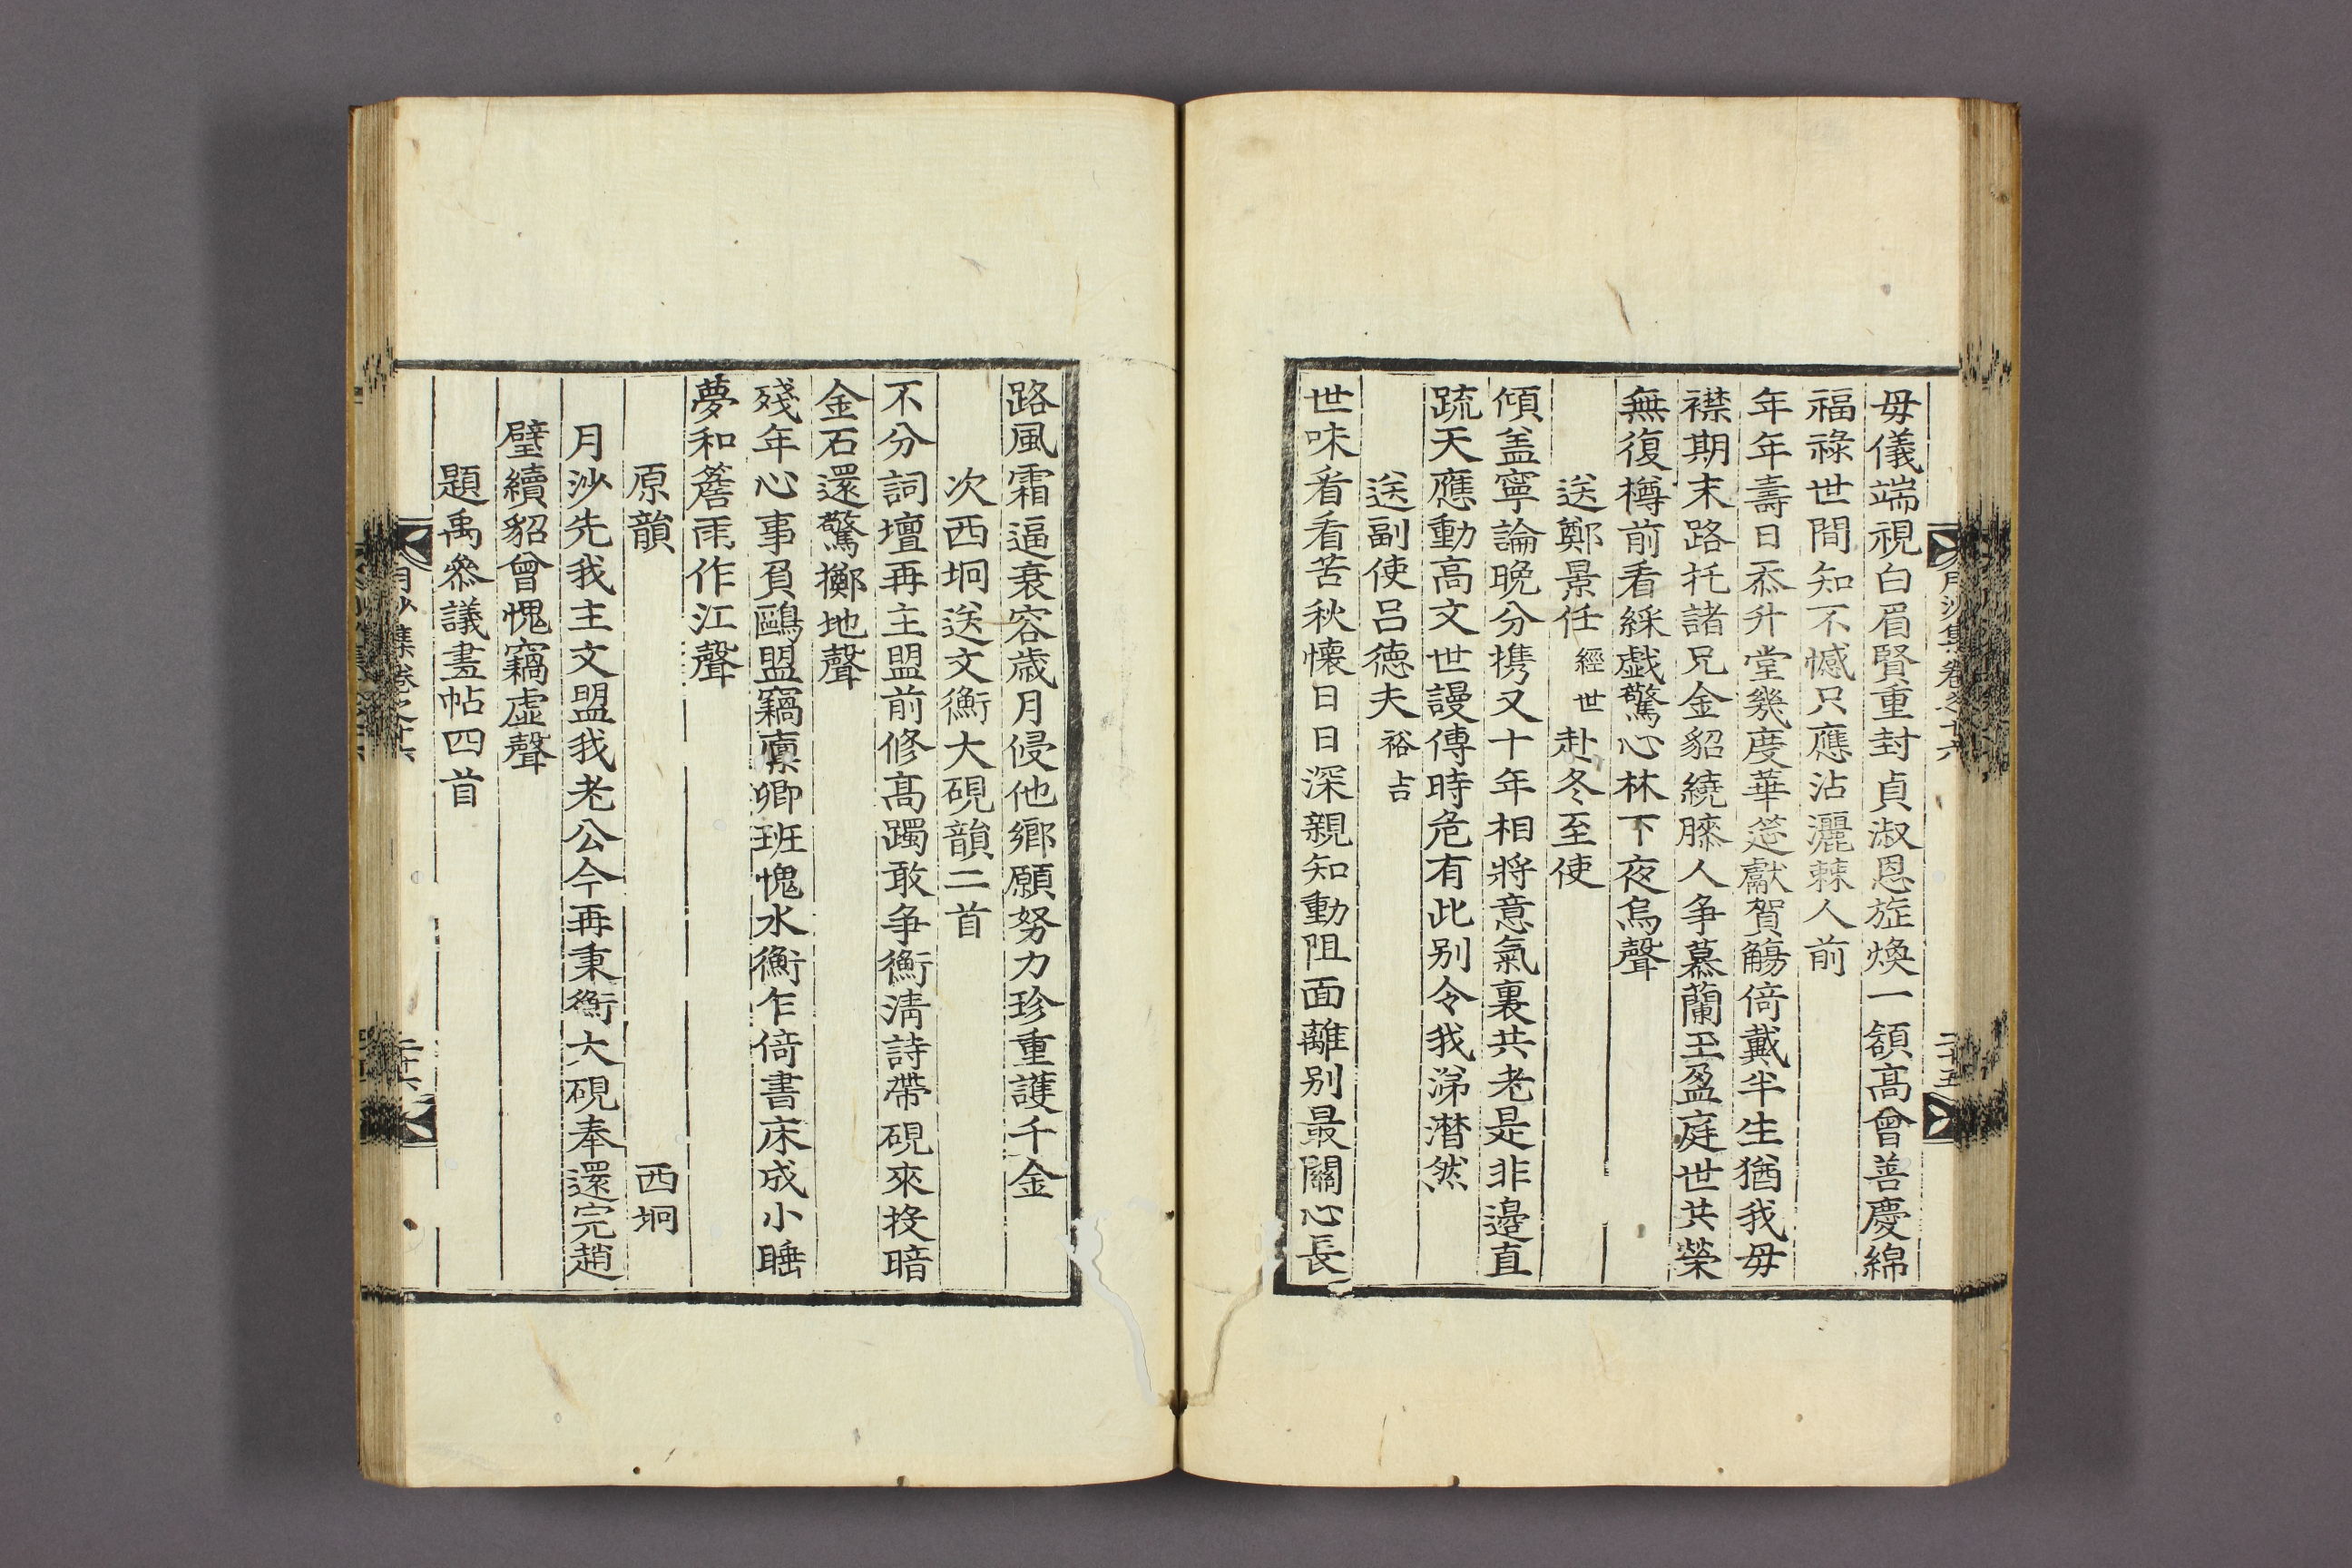 月沙集卷之十六
二十五
毋儀端視白眉賢重封貞淑恩旋煥一頷高曾善慶綿
福祿世間知不憾只應沾灑棘人前
年年壽日忝升堂幾度華筵獻賀觴倚戴半生猶我毋
襟期末路托諸兄金貂繞膝人争慕蘭玉盈庭世共榮
無復樽前看綵戱驚心林下夜烏聲
送鄭景任經世赴冬至使
傾盖寧論晩分携又十年相將意氣裏共老是非邉直
䟽天應動高文世謾傳時危有此别令我涕潸然
送副使呂德夫裕吉
世味看看苦秋懷日日深親知動阻面離别最關心長
路風霜逼衰容歲月侵他鄉願努力珍重護千金
次西坰送文衡大硯韻二首
不分詞壇再主盟前修髙躅敢争衡淸詩帶硯來投暗
金石還驚擲地聲
殘年心事負鷗盟竊廩卿班愧水衡乍倚書床成小睡
夢和簷雨作江聲
原韻 西坰
月沙先我主文盟我老公今再秉衡大硯奉還完趙
璧續貂曾愧竊虛聲
題禹叅議畫帖四首
月沙集卷之十六
二十六